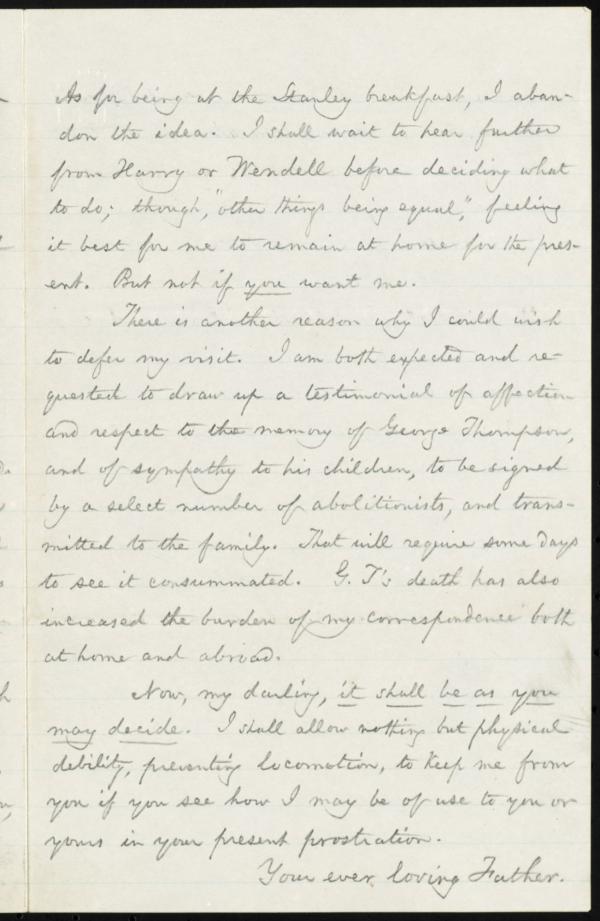 As for being at the Stanley breakfast, I aban-
don the idea. I shall wait to hear further
from Harry or Wendell before deciding what
to do; though, "other things being equal," feeling
it best for me to remain at home for the pres-
ent. But not if you want me.
There is another reason why I could wish
to defer my visit. I am both expected and re-
quested to draw up a testimonial of affection
and respect to the memory of George Thompson,
and of sympathy to his children, to be signed
by a select number of abolitionists, and trans-
mitted to the family. That will require some days
to see it consummated. G. T's death has also
increased the burden of my correspondence both
at home and abroad.
Now, my darling, it shall be as you
may decide. I shall allow nothing but physical
debility, preventing locomotion, to keep me from
you if you see how I may be of use to you or
yours in your present prostration.
Your ever loving Father.